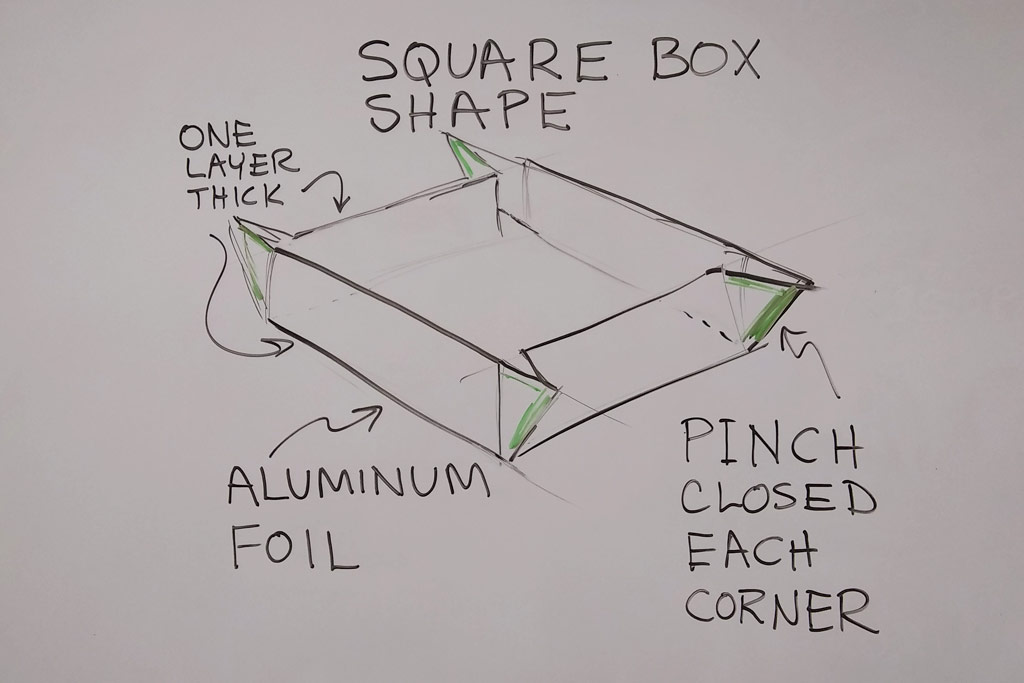 SQUARE BOX
SHAPE
ONE
LAYER
THICK
ALUMINUM
FOIL
PINCH
CLOSED
EACH
CORNER